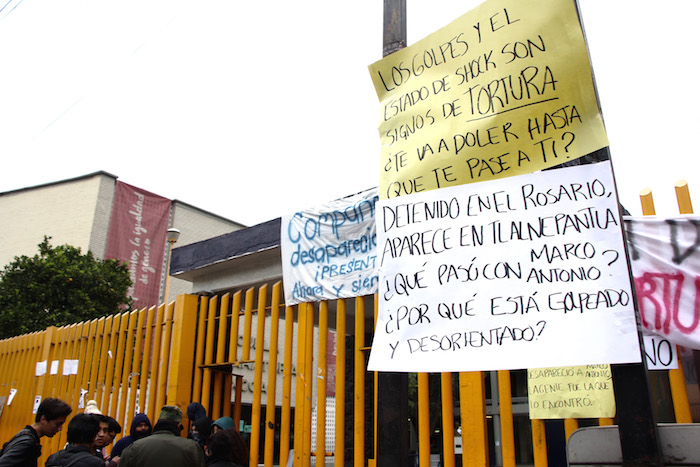 LOS GOLPES Y EL
ESTADO DE SHOCK SON
SIGNOS DE TORTURA
¿TE VA A DOLER HASTA
QUE TE PASE A TI?
DETENIDO EN EL ROSARIO,
APARECE EN TLALNEPANTLA
¿QUÉ PASÓ CON MARCO
ANTONIO?
¿POR QUÉ ESTÁ GOLPEADO
Y DESORIENTADO?
desaparecido
¡PRESENT
Ahora y siem
la igualdad
de género
MARCO
ANTONIO
DESAPARECIÓ A
LA GENTE FUE LA QUE
LO ENCONTRÓ.
NO